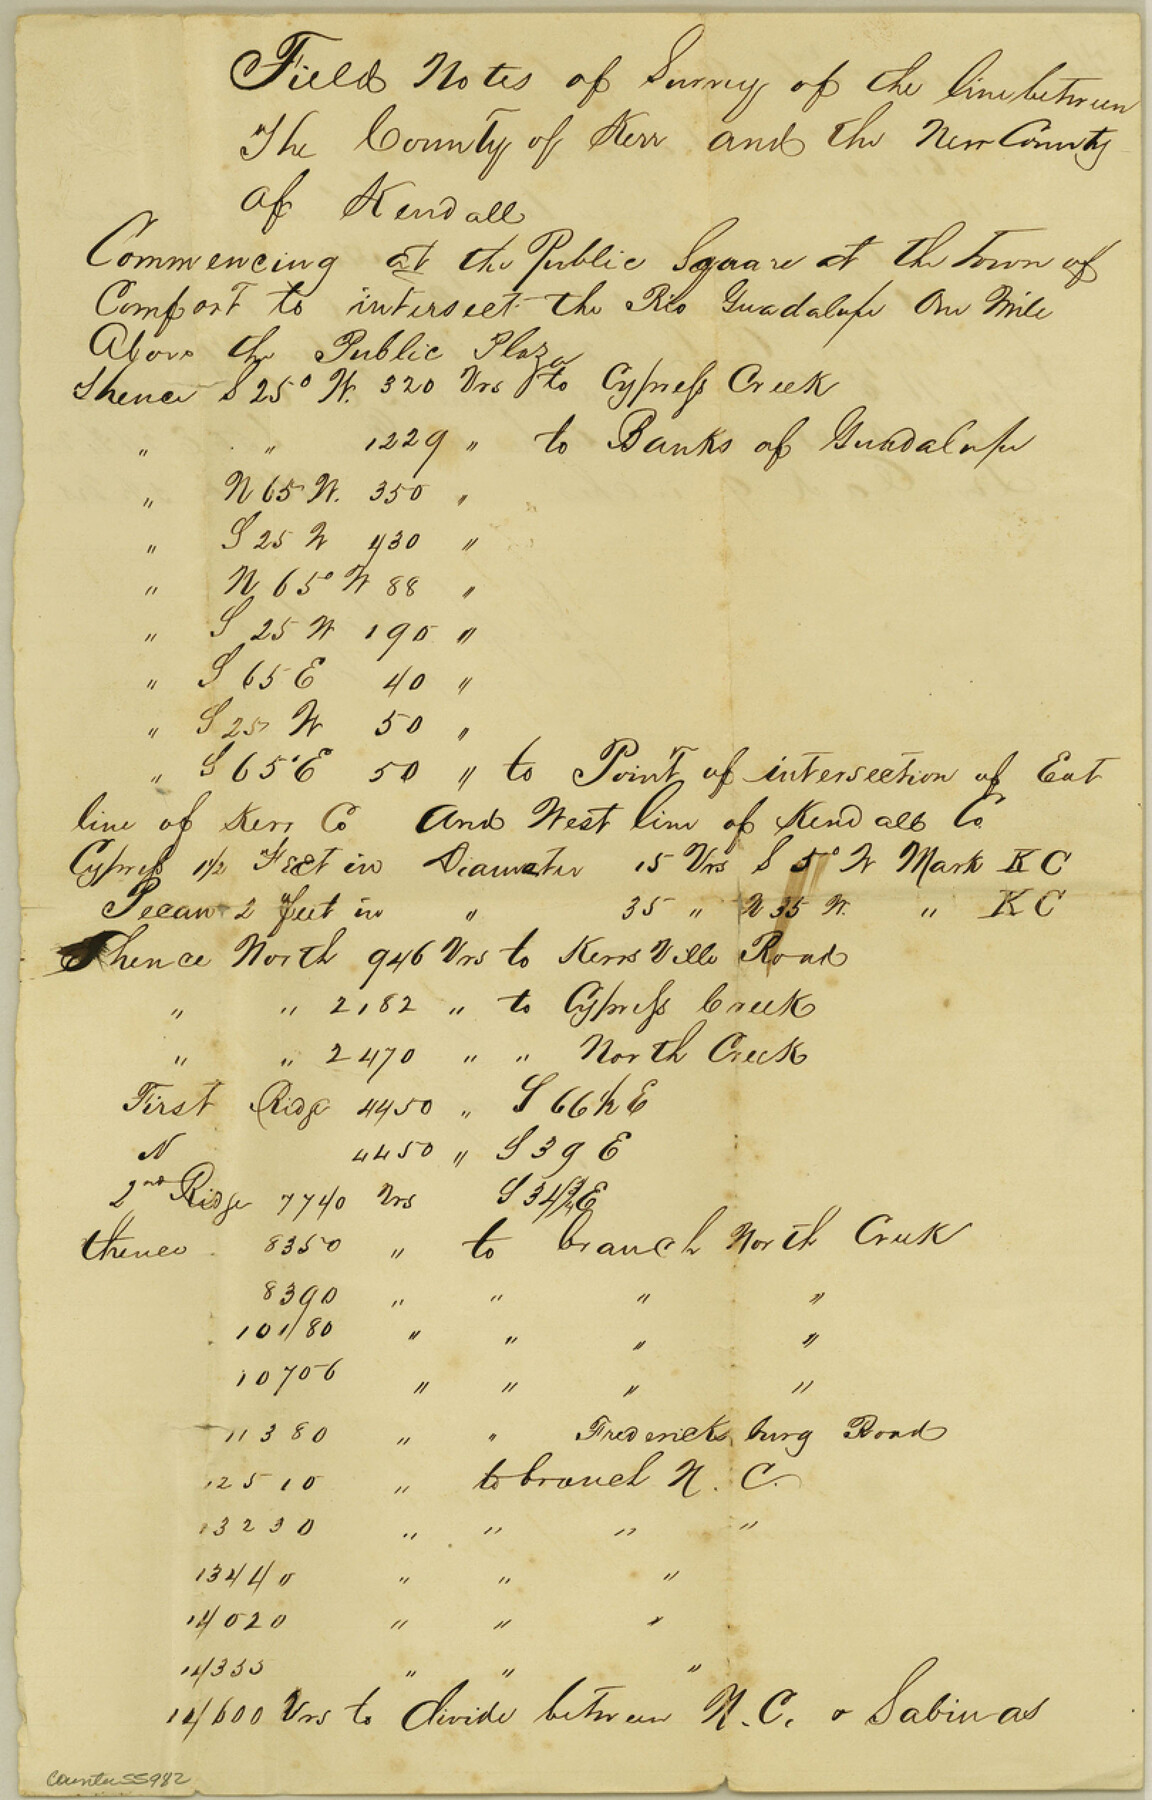 Field Notes of Survey of the line between
The County of Kerr and the New County
of Kendall
Commencing at the Public Square at the Town of
Comfort to intersect the Rio Guadalupe One Mile
Above the Public Plaza
Thence S 25° W. 320 Vrs to Cypress Creek
" " 1229 " to Banks of Guadalupe
" N 65 W. 350 "
" S 25 W 430 "
" N 65° W 88 "
" S 25 W 190 "
" S 65 E 40 "
" S 25 W 50 "
" S 65° E 50 " to Point of intersection of Eat
line of Kerr Co And West line of Kendall Co
Cypress 1 1/2 Feet in Diameter 15 Vrs S 5° W Mark KC
Pecan 2 feet in " 35 " N 35 W. " KC
Thence North 946 Vrs to Kerrs Ville Road
" " 2182 " to Cypress Creek
" " 2470 " " North Creek
First Ridge 4450 " S 66 1/2 E
N 4450 " S 39 E
2nd Ridge 7740 Vrs S 34 3/4 E
thence 8350 " to branch North Creek
8390 " " " "
10180 " " " "
10706 " " " "
11380 " " Fredericksburg Road
12510 " to branch N. C.
13230 " " " "
13440 " " "
14020 " " "
14355 " " "
14600 Vrs to divide between N. C. & Sabinas
Counter 55982